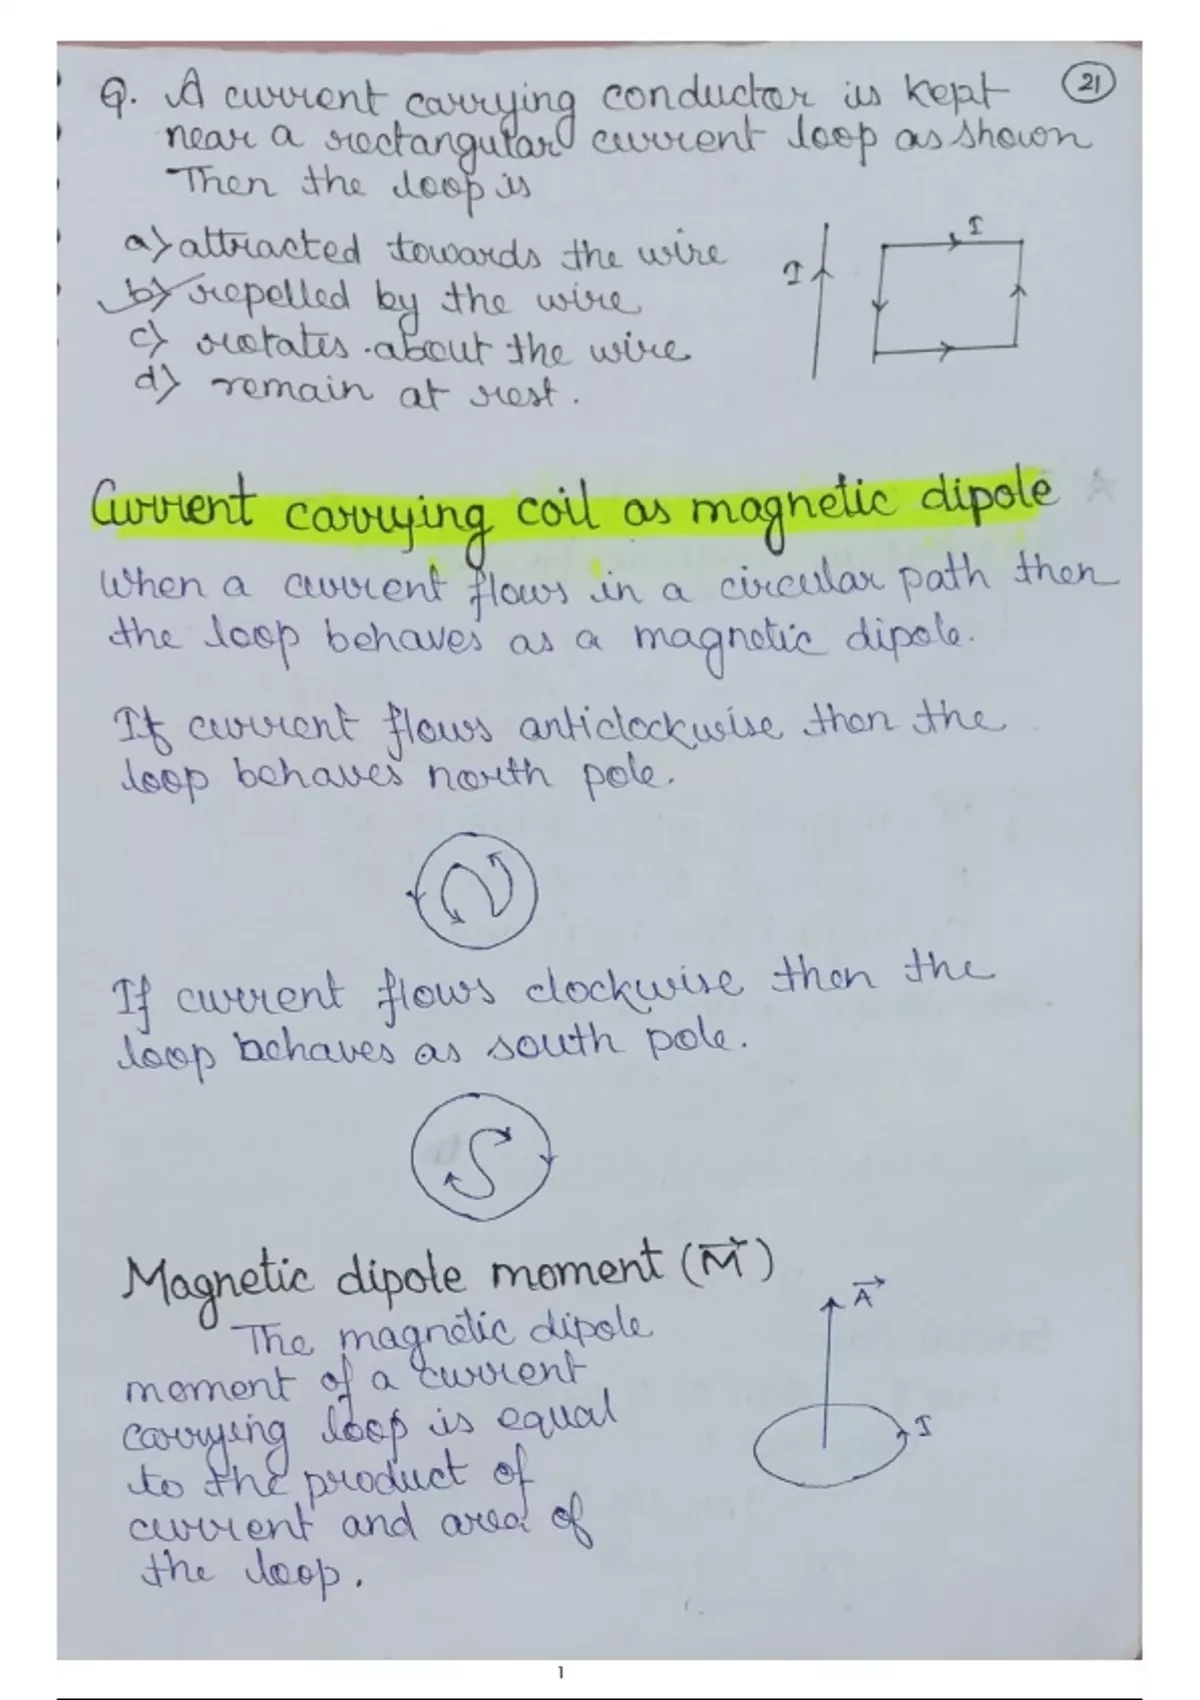 21
Q. A current carrying conductor is kept
near a rectangular current loop as shown
Then the loop is
a) attracted towards the wire
b) repelled by the wire
c) rotates about the wire
d) remain at rest.
I
I
Current carrying coil as magnetic dipole
When a current flows in a circular path then
the loop behaves as a magnetic dipole.
If current flows anticlockwise then the
loop behaves north pole.
N
If current flows clockwise then the
loop behaves as south pole.
S
Magnetic dipole moment (M⃗)
The magnetic dipole
moment of a current
carrying loop is equal
to the product of
current and area of
the loop.
A⃗
I
1